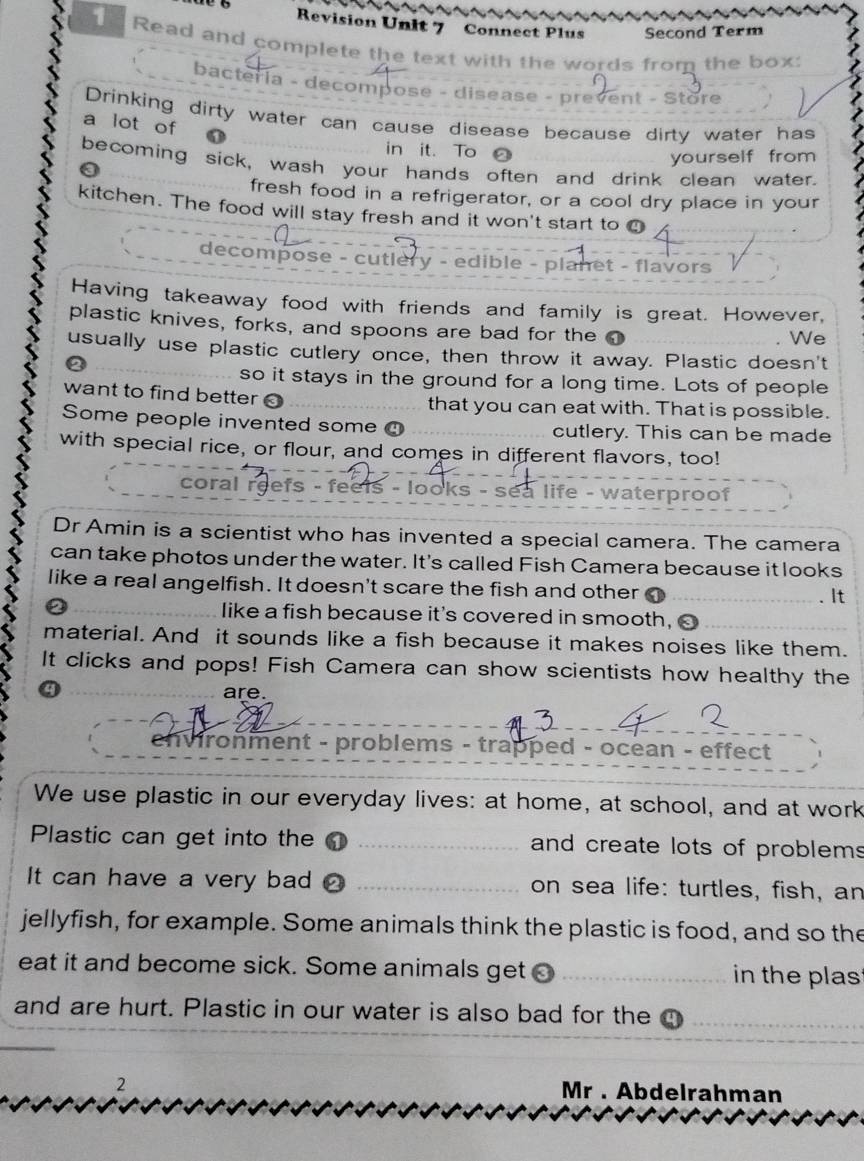 Revision Unit 7 Connect Plus Second Term
1 Read and complete the text with the words from the box:
4 4 2 3
bacteria - decompose - disease - prevent - Store
Drinking dirty water can cause disease because dirty water has
a lot of 1 .................... in it. To 2 .................... yourself from
becoming sick, wash your hands often and drink clean water.
3 .................... fresh food in a refrigerator, or a cool dry place in your
kitchen. The food will stay fresh and it won't start to 4 ....................
2 3 1 4
decompose - cutlery - edible - planet - flavors
Having takeaway food with friends and family is great. However,
plastic knives, forks, and spoons are bad for the 1 .................... . We
usually use plastic cutlery once, then throw it away. Plastic doesn't
2 .................... so it stays in the ground for a long time. Lots of people
want to find better 3 .................... that you can eat with. That is possible.
Some people invented some 4 .................... cutlery. This can be made
with special rice, or flour, and comes in different flavors, too!
3 2 4 1
coral reefs - feels - looks - sea life - waterproof
Dr Amin is a scientist who has invented a special camera. The camera
can take photos under the water. It's called Fish Camera because it looks
like a real angelfish. It doesn't scare the fish and other 1 .................... . It
2 .................... like a fish because it's covered in smooth, 3 ....................
material. And it sounds like a fish because it makes noises like them.
It clicks and pops! Fish Camera can show scientists how healthy the
4 .................... are.
3 4 2
environment - problems - trapped - ocean - effect
We use plastic in our everyday lives: at home, at school, and at work
Plastic can get into the 1 .................... and create lots of problems
It can have a very bad 2 .................... on sea life: turtles, fish, an
jellyfish, for example. Some animals think the plastic is food, and so the
eat it and become sick. Some animals get 3 .................... in the plas
and are hurt. Plastic in our water is also bad for the 4 ....................
2
Mr . Abdelrahman